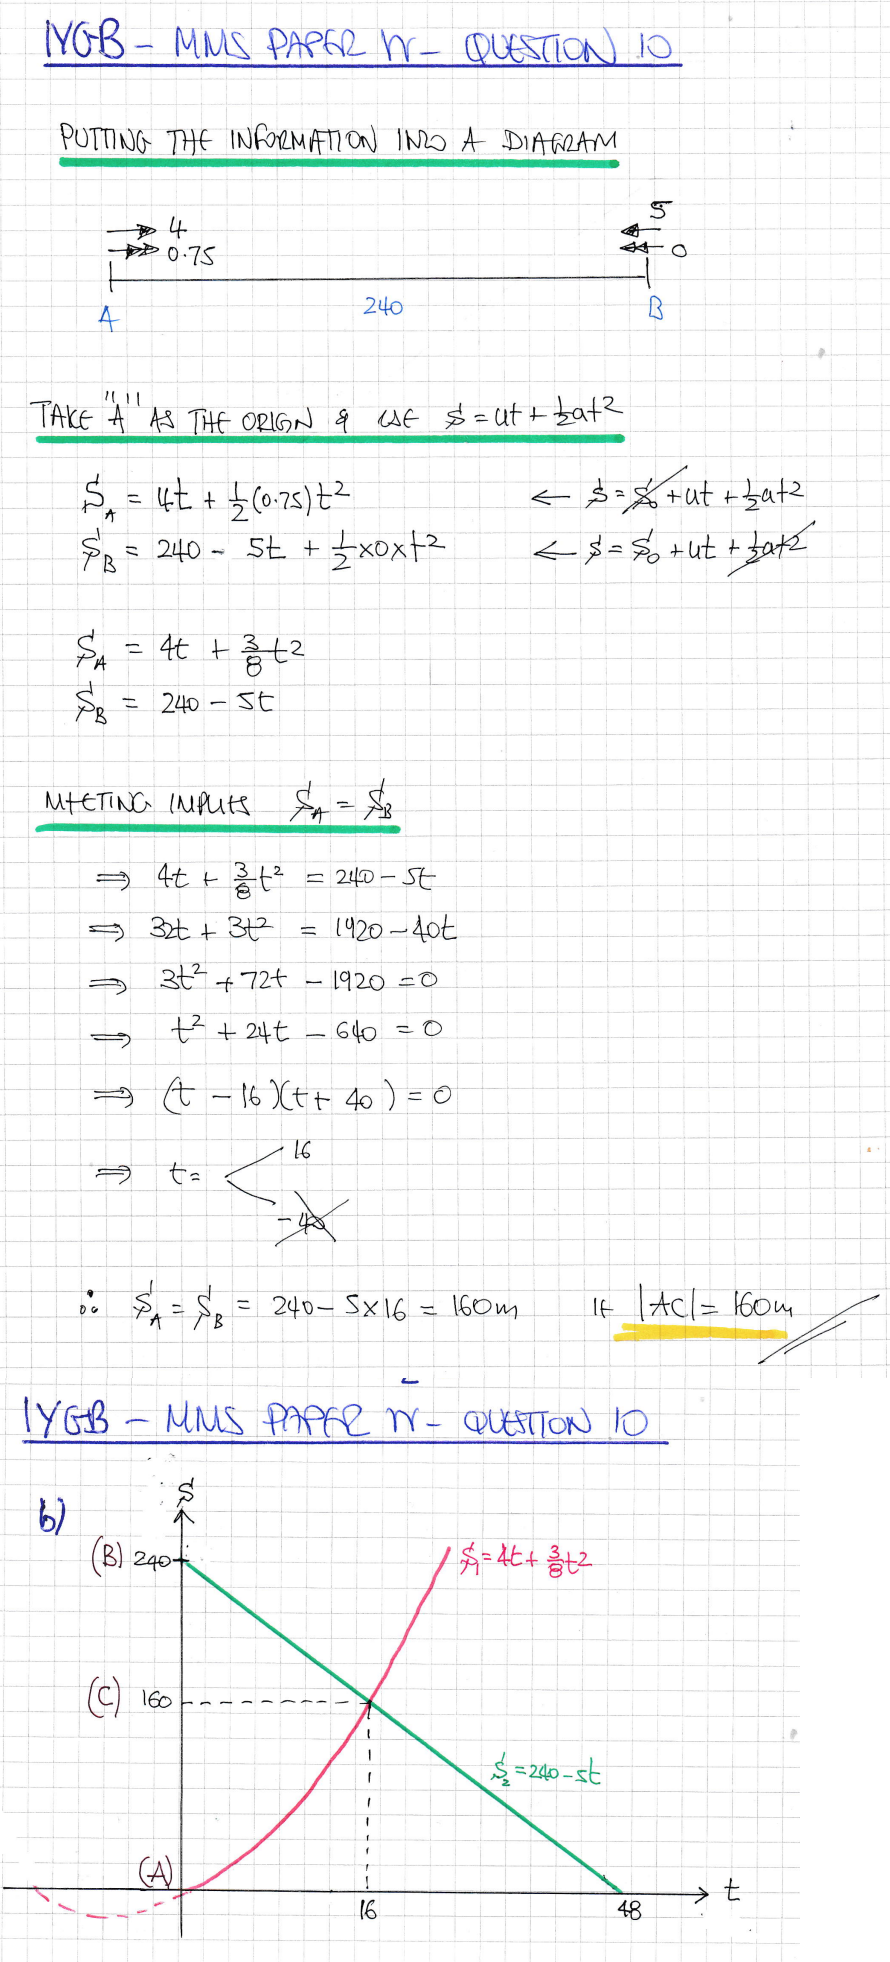 IYGB - MMS PAPER W - QUESTION 10
PUTTING THE INFORMATION INTO A DIAGRAM
4
0.75
5
0
A
240
B
TAKE "A" AS THE ORIGIN & USE S = ut + ½at²
S_A = 4t + ½(0.75)t² ← S = S₀ + ut + ½at²
S_B = 240 - 5t + ½×0×t² ← S = S₀ + ut + ½at²
S_A = 4t + 3/8 t²
S_B = 240 - 5t
MEETING IMPLIES S_A = S_B
⇒ 4t + 3/8 t² = 240 - 5t
⇒ 32t + 3t² = 1920 - 40t
⇒ 3t² + 72t - 1920 = 0
⇒ t² + 24t - 640 = 0
⇒ (t - 16)(t + 40) = 0
⇒ t = 16
-40
∴ S_A = S_B = 240 - 5×16 = 160m IE |AC| = 160m
IYGB - MMS PAPER W - QUESTION 10
b)
S
(B) 240
S₁ = 4t + 3/8 t²
(C) 160
S₂ = 240 - 5t
(A)
t
16
48